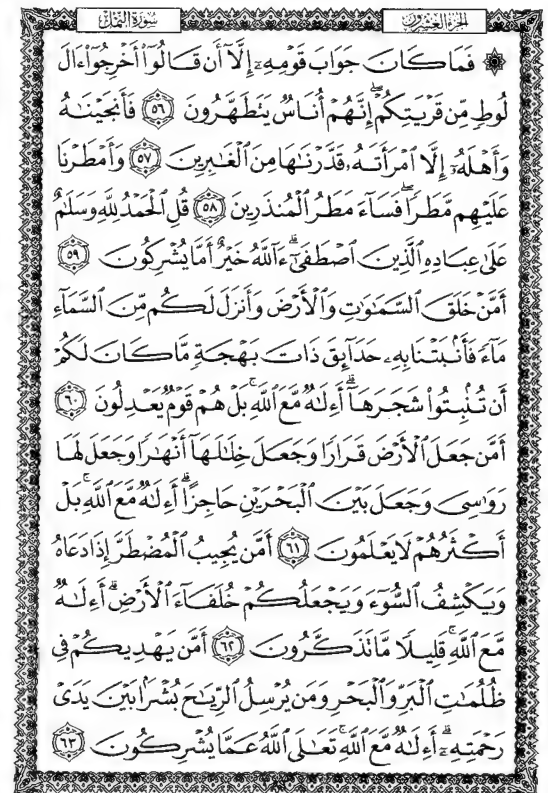 الجزء العشرون سورة النمل
۞ فَمَا كَانَ جَوَابَ قَوْمِهِۦٓ إِلَّآ أَن قَالُوٓا۟ أَخْرِجُوٓا۟ ءَالَ
لُوطٍ مِّن قَرْيَتِكُمْ ۖ إِنَّهُمْ أُنَاسٌ يَتَطَهَّرُونَ ٥٦ فَأَنجَيْنَـٰهُ
وَأَهْلَهُۥٓ إِلَّا ٱمْرَأَتَهُۥ قَدَّرْنَـٰهَا مِنَ ٱلْغَـٰبِرِينَ ٥٧ وَأَمْطَرْنَا
عَلَيْهِم مَّطَرًا ۖ فَسَآءَ مَطَرُ ٱلْمُنذَرِينَ ٥٨ قُلِ ٱلْحَمْدُ لِلَّهِ وَسَلَـٰمٌ
عَلَىٰ عِبَادِهِ ٱلَّذِينَ ٱصْطَفَىٰٓ ۗ ءَآللَّهُ خَيْرٌ أَمَّا يُشْرِكُونَ ٥٩
أَمَّنْ خَلَقَ ٱلسَّمَـٰوَٰتِ وَٱلْأَرْضَ وَأَنزَلَ لَكُم مِّنَ ٱلسَّمَآءِ
مَآءً فَأَنۢبَتْنَا بِهِۦ حَدَآئِقَ ذَاتَ بَهْجَةٍ مَّا كَانَ لَكُمْ
أَن تُنۢبِتُوا۟ شَجَرَهَآ ۗ أَءِلَـٰهٌ مَّعَ ٱللَّهِ ۚ بَلْ هُمْ قَوْمٌ يَعْدِلُونَ ٦٠
أَمَّن جَعَلَ ٱلْأَرْضَ قَرَارًا وَجَعَلَ خِلَـٰلَهَآ أَنْهَـٰرًا وَجَعَلَ لَهَا
رَوَٰسِىَ وَجَعَلَ بَيْنَ ٱلْبَحْرَيْنِ حَاجِزًا ۗ أَءِلَـٰهٌ مَّعَ ٱللَّهِ ۚ بَلْ
أَكْثَرُهُمْ لَا يَعْلَمُونَ ٦١ أَمَّن يُجِيبُ ٱلْمُضْطَرَّ إِذَا دَعَاهُ
وَيَكْشِفُ ٱلسُّوٓءَ وَيَجْعَلُكُمْ خُلَفَآءَ ٱلْأَرْضِ ۗ أَءِلَـٰهٌ
مَّعَ ٱللَّهِ ۚ قَلِيلًا مَّا تَذَكَّرُونَ ٦٢ أَمَّن يَهْدِيكُمْ فِى
ظُلُمَـٰتِ ٱلْبَرِّ وَٱلْبَحْرِ وَمَن يُرْسِلُ ٱلرِّيَـٰحَ بُشْرًۢا بَيْنَ يَدَىْ
رَحْمَتِهِۦٓ ۗ أَءِلَـٰهٌ مَّعَ ٱللَّهِ ۚ تَعَـٰلَى ٱللَّهُ عَمَّا يُشْرِكُونَ ٦٣